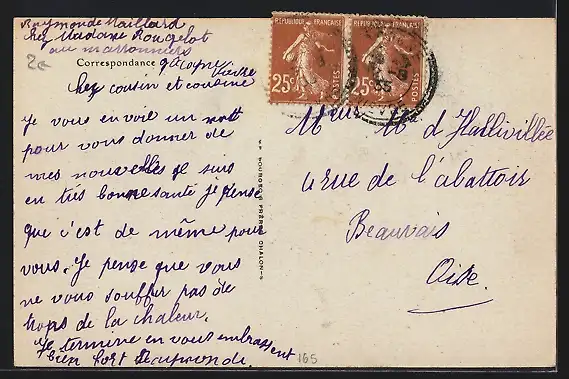 Raymonde Maillard
chez Madame Rougelot
au marronniers
Correspondance
2e
cher cousin et cousine
Je vous envoie un mott
pour vous donner de
mes nouvelles Je suis
en très bonne santé je pense
que c'est de même pour
vous. Je pense que vous
ne vous souffler pas de
trops de la chaleur.
Je termine en vous embrassent
bien fort
165
BOURGEOIS FRÈRES CHALON-S
RÉPUBLIQUE FRANÇAISE
25c POSTES
RÉPUBLIQUE FRANÇAISE
25c POSTES
Mme d'Hallivillée
4 rue de l'abattoir
Beauvais
Oise.